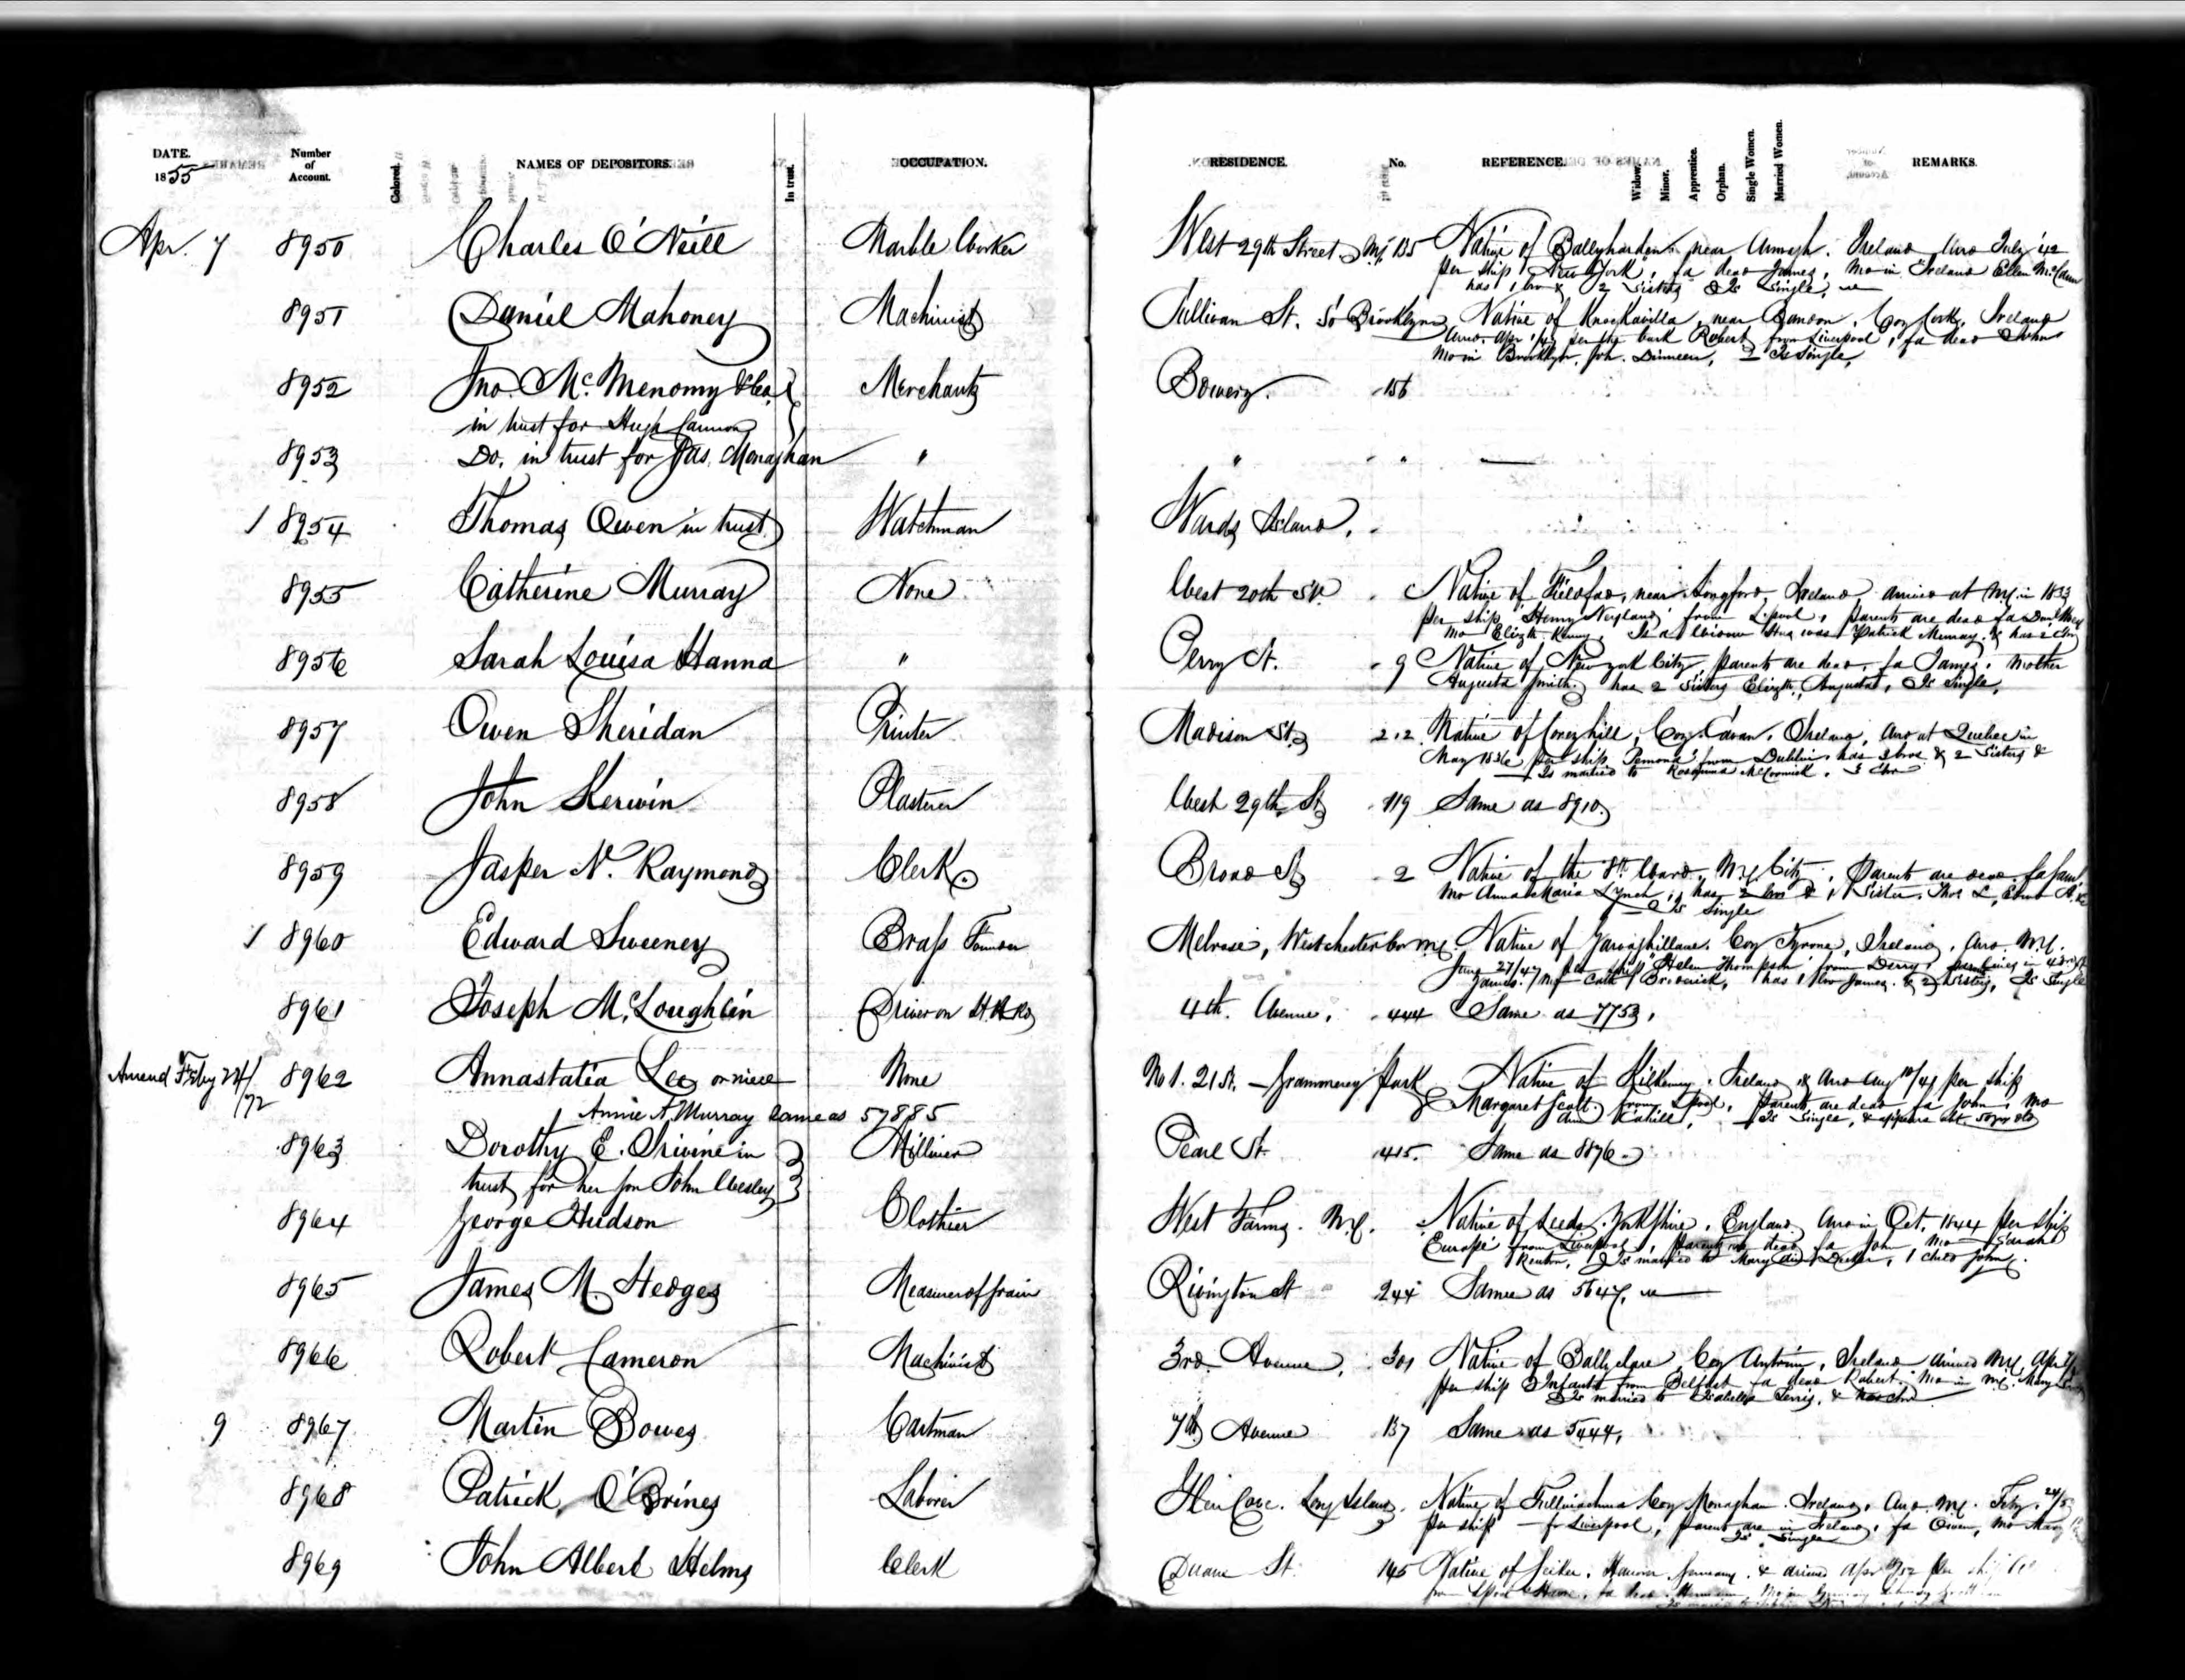 DATE. 1855 Number of Account. Colored. NAMES OF DEPOSITORS. In trust. OCCUPATION. RESIDENCE. No. REFERENCE. Widow. Minor. Apprentice. Orphan. Single Women. Married Women. REMARKS.
Apr. 7 8950 Charles O'Neill Marble Worker West 29th Street, N.Y. 135 Native of near Armagh. Ireland Arrd July '42
per ship "New York", fa dead James, Mo in Ireland Ellen McCann
has 1 bro & 2 Sisters & Is Single,
8951 Daniel Mahoney Machinist Sullivan St. So Brooklyn Native of Knockavilla, near Bandon, Coy Cork, Ireland
Arrd. Apr per the bark Robert from Liverpool, fa dead John
Mo in Brooklyn, Joh. Dinneen, Is Single,
8952 Jno. Mc.Menomy & Co. Merchants Bowery. 156
in trust for Hugh Cannon
8953 Do. in trust for Jas. Monaghan " " "
/ 8954 Thomas Owen in trust Watchman Wards Island.
8955 Catherine Murray None West 20th St. Native of near Longford, Ireland, arrived at N.Y. in 1833
per ship, Henry from L'pool, parents are dead fa
Mo Elizth. Kenny, Is a Widow Hus was Patrick Murray, & has 2 Chn
8956 Sarah Louisa Hanna " Perry St. 9 Native of New York City, parents are dead, fa James, Mother
Augusta Smith, has 2 Sisters Elizth., Augusta, Is Single,
8957 Owen Sheridan Printer Madison St. 212 Native of Coneyhill, Coy. Cavan, Ireland, Arrd at Quebec in
May 1836 per ship from Dublin, has 2 bros & 2 Sisters &
Is married to Rosanna McCormick, 3 Chn
8958 John Kerwin Plasterer West 29th St 119 Same as 8910,
8959 Jasper N. Raymond Clerk Broad St 2 Native of the 8th Ward, N.Y. City, Parents are dead fa Saml,
Mo Anna Maria Lynch, has 2 bros & 1 Sister, Thos L, Edwd
Is Single
/ 8960 Edward Sweeney Brass Founder Melrose, Westchester Co N.Y. Native of Coy Tyrone, Ireland, Arrd. N.Y.
June 27/47 per ship "Helen Thompson" from Derry,
James. Cath Broderick, has 1 bro James, & 2 Sisters, Is Single
8961 Joseph Mc.Loughlin Driver on 4th Avenue, 444 Same as 7753,
Amend Feby 24/72 8962 Annastatia Lee or niece None No 1. 21 St. Grammercy Park Native of Kilkenny, Ireland & Arrd Aug 10/41 per ship
Annie A. Murray same as 57885 Margaret Scott from L'pool, Parents are dead fa John, Mo
Ann Cahill, Is Single, & appears abt. 50 yrs old
8963 Dorothy E. Irivine in Milliner Pearl St. 415. Same as 8876.
trust for her son John Wesley
8964 George Hudson Clothier West Farms. N.Y. Native of Leeds, Yorkshire, England, Arrd in Oct. 1844 per ship
Europe from Liverpool, Parents are dead fa John, Mo Sarah
Is married to Mary Ann 1 child John.
8965 James M. Hedges Measurer of Grain Rivington St 244 Same as 5647,
8966 Robert Cameron Machinist 3rd. Avenue, 301 Native of Ballyclare Coy Antrim, Ireland arrived N.Y. Apr
per ship Infanta from Belfast fa dead Robert, Mo in N.Y. Mary
Is married to Isabella & has chn
9 8967 Martin Bowes Cartman 7th Avenue 137 Same as 5444,
8968 Patrick O'Brines Laborer Glen Cove. Long Island. Native of Coy Monaghan. Ireland, Arrd. N.Y. Feby. 24/5
per ship — fr Liverpool, parents are in Ireland, fa Owen, Mo Mary
Is Single
8969 John Albert Helms Clerk Duane St. 145 Native of Hanover, Germany, & arrived Apr per ship